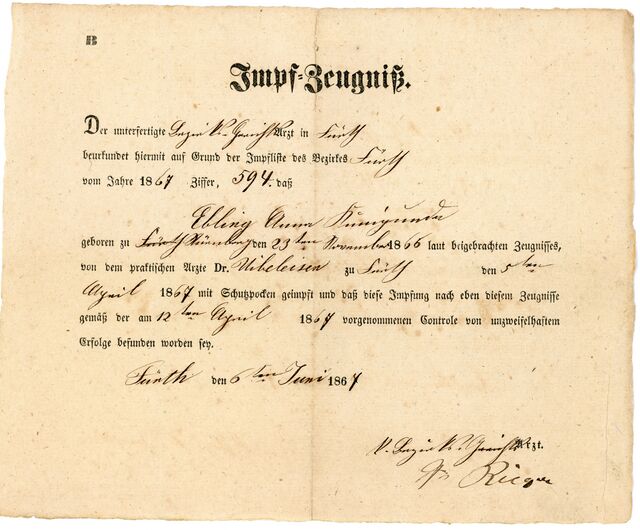 B
Impf-Zeugniß.
Der unterfertigte Bezirks-Gerichts Arzt in Fürth
beurkundet hiermit auf Grund der Impfliste des Bezirkes Fürth
vom Jahre 1867 Ziffer, 594. daß
Ebling Anna Kunigunda
geboren zu Fürth Nürnberg den 23ten November 1866 laut beigebrachten Zeugnisses,
von dem praktischen Arzte Dr. Uibeleisen zu Fürth den 5ten
April 1867 mit Schutzpocken geimpft und daß diese Impfung nach eben diesem Zeugnisse
gemäß der am 12ten April 1867 vorgenommenen Controle von unzweifelhaftem
Erfolge befunden worden sey.
Fürth den 6ten Juni 1867
k. Bezirks-Gerichts Arzt.
Dr Rieger